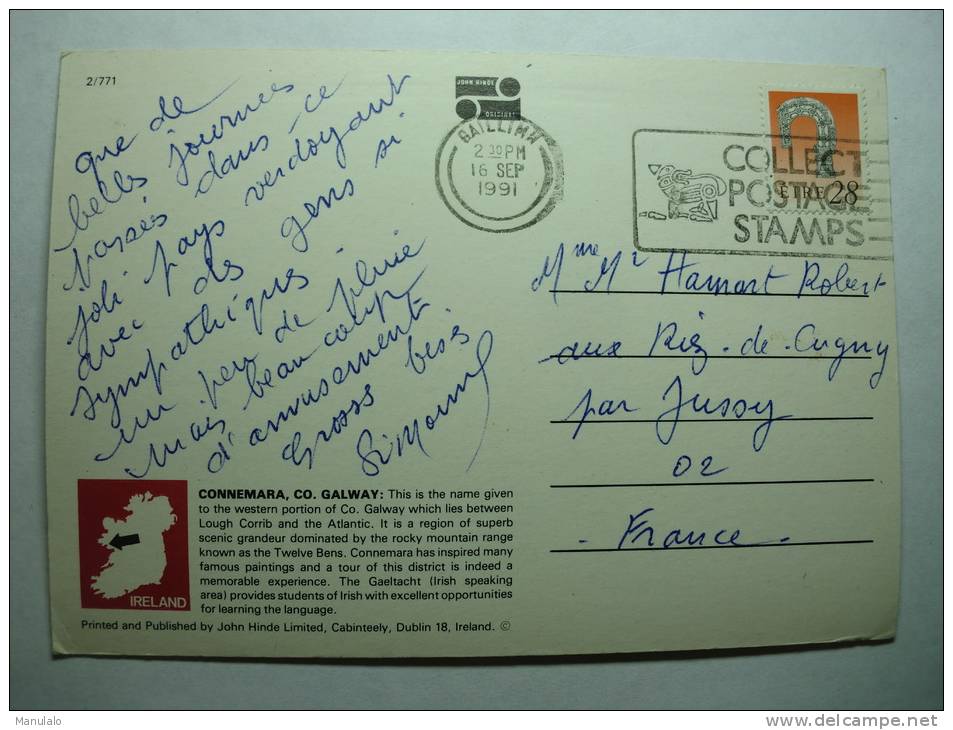 2/771
que de
belles journées
passés dans ce
joli pays verdoyant
avec des gens si
sympathiques.
un peu de pluie
mais beaucoup
d'amusement
Grosses bises
Simonne
JOHN HINDE
GAILLIMH
2 30 PM
16 SEP
1991
COLLECT
POSTAGE
STAMPS
ÉIRE 28
Mme Mr Hamart Robert
aux Riez-de-Cugny
par Jussy
02
- France -
CONNEMARA, CO. GALWAY: This is the name given
to the western portion of Co. Galway which lies between
Lough Corrib and the Atlantic. It is a region of superb
scenic grandeur dominated by the rocky mountain range
known as the Twelve Bens. Connemara has inspired many
famous paintings and a tour of this district is indeed a
memorable experience. The Gaeltacht (Irish speaking
area) provides students of Irish with excellent opportunities
for learning the language.
IRELAND
Printed and Published by John Hinde Limited, Cabinteely, Dublin 18, Ireland. ©
Manulalo
www.delcampe.net